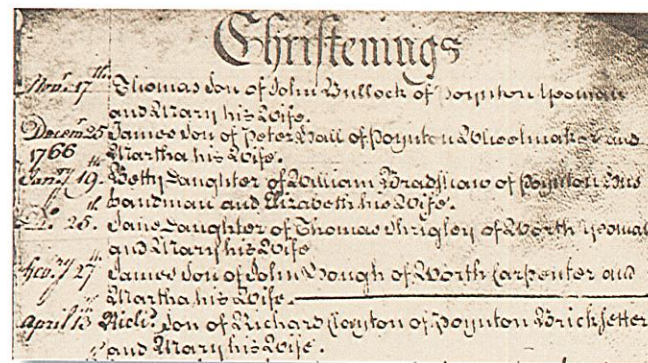 Christenings
Novr. 17th. Thomas Son of John Bullock of Poynton Yeoman
and Mary his Wife.
Decem. 25 James Son of Peter Hall of Poynton Wheelmaker and
1766 Martha his Wife.
Janry. 19th. Betty Daughter of William Bradshaw of Poynton Hus
bandman and Elizabeth his Wife.
Do. 25th. Jane Daughter of Thomas Shrigley of Worth Yeoman
and Mary his Wife
27th James Son of John Hough of Worth Carpenter and
Martha his Wife.
April 13 Richd. Son of Richard Clayton of Poynton Brick setter
and Mary his Wife.